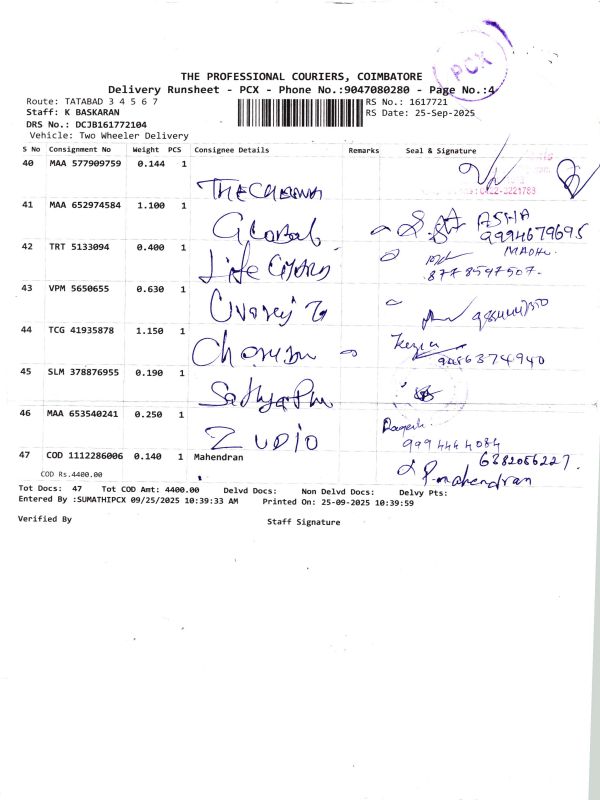 PCX
THE PROFESSIONAL COURIERS, COIMBATORE
Delivery Runsheet - PCX - Phone No.:9047080280 - Page No.:4
Route: TATABAD 3 4 5 6 7
RS No.: 1617721
Staff: K BASKARAN
RS Date: 25-Sep-2025
DRS No.: DCJB161772104
Vehicle: Two Wheeler Delivery
S No Consignment No Weight PCS Consignee Details Remarks Seal & Signature
40 MAA 577909759 0.144 1
41 MAA 652974584 1.100 1 Global ASHA
9994679695
42 TRT 5133094 0.400 1 Life MADHU
8778597507.
43 VPM 5650655 0.630 1
44 TCG 41935878 1.150 1 Kezia
9486374940
45 SLM 378876955 0.190 1
46 MAA 653540241 0.250 1 ZUDIO
9994444084
47 COD 1112286006 0.140 1 Mahendran 6382056227.
P.mahendran
COD Rs.4400.00
Tot Docs: 47 Tot COD Amt: 4400.00 Delvd Docs: Non Delvd Docs: Delvy Pts:
Entered By :SUMATHIPCX 09/25/2025 10:39:33 AM Printed On: 25-09-2025 10:39:59
Verified By Staff Signature